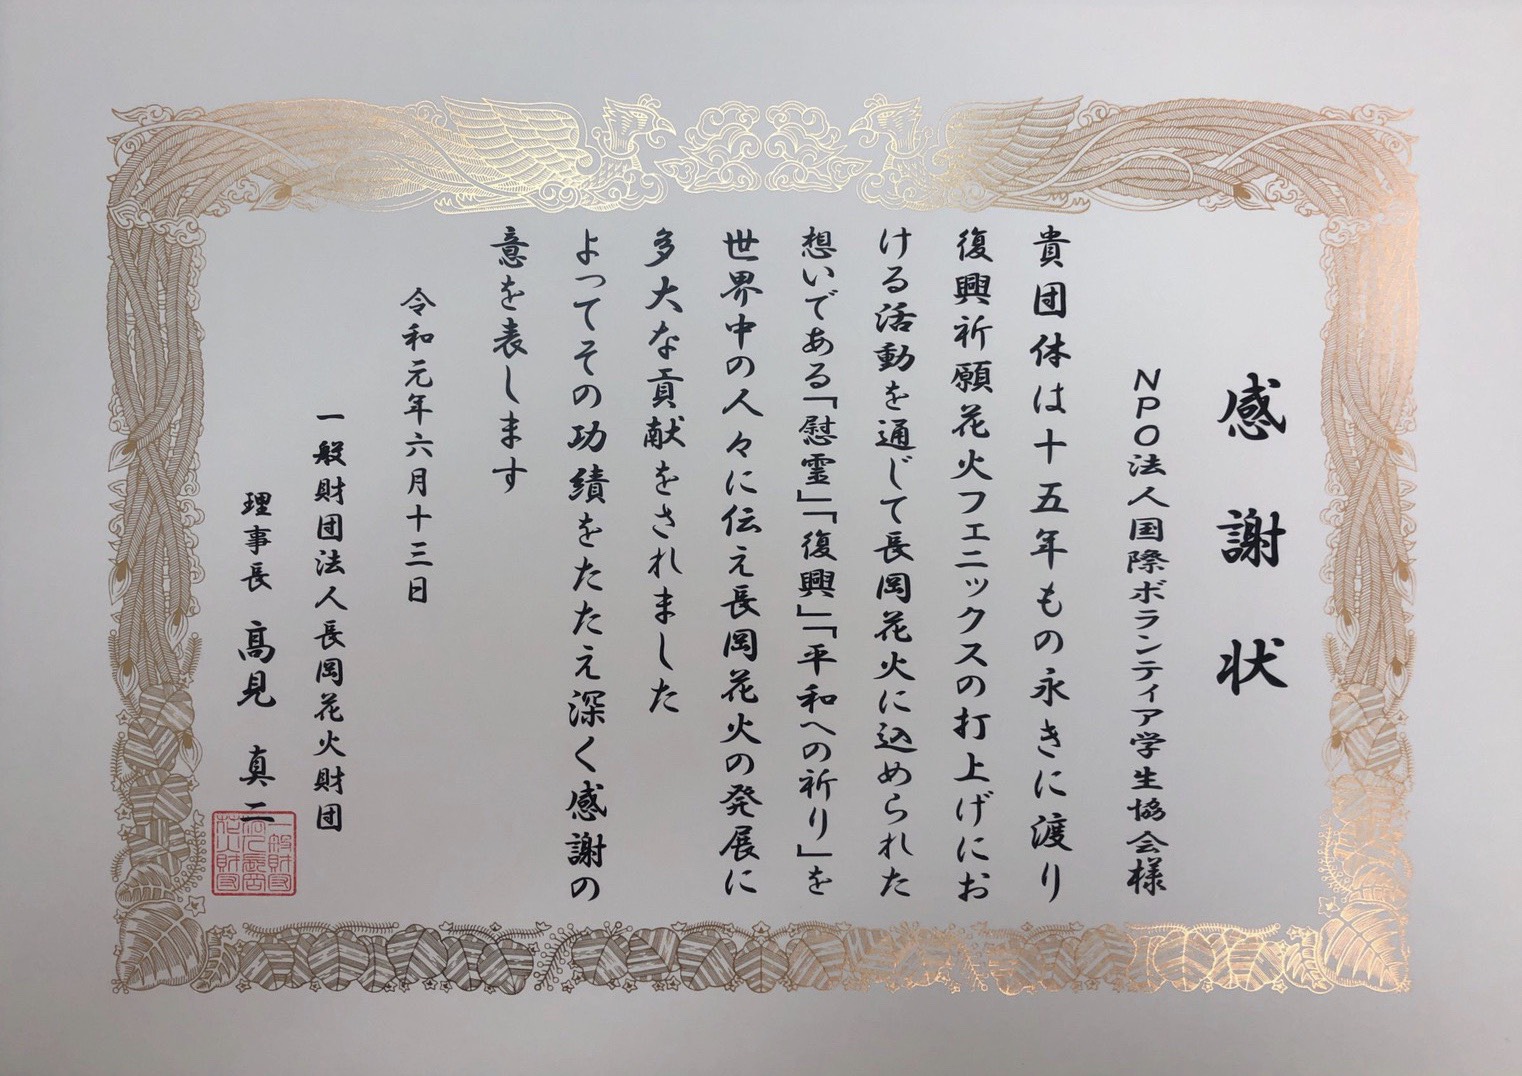 感謝状
NPO法人国際ボランティア学生協会様
貴団体は十五年もの永きに渡り
復興祈願花火フェニックスの打上げにお
ける活動を通じて長岡花火に込められた
想いである「慰霊」「復興」「平和への祈り」を
世界中の人々に伝え長岡花火の発展に
多大な貢献をされました
よってその功績をたたえ深く感謝の
意を表します
令和元年六月十三日
一般財団法人長岡花火財団
理事長 髙見 真二
一般財団
法人長岡
花火財団